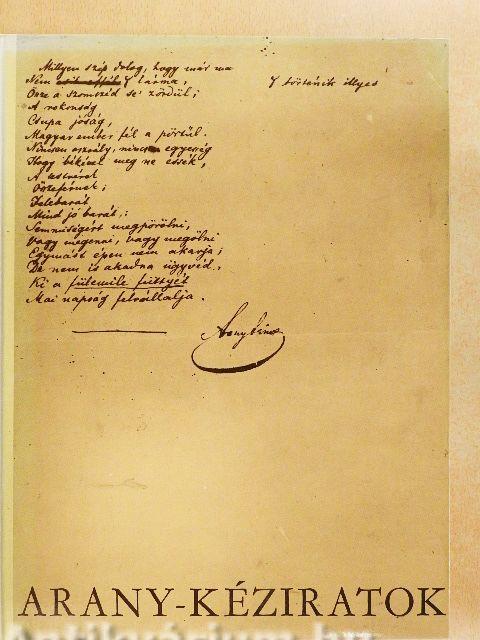 Millyen szép dolog, hogy már ma
Nem csik-effélé ₣ lárma, ₣ történik illyes
Össze a szomszéd se zördül;
A rokonság
Csupa jóság,
Magyar ember fél a pörtül.
Nincsen osztály, nincsen egyesség
Hogy bikével meg ne essék,
A testvérek
Összeférnek;
Felebarát
Mind jó barát;
Semmiségért megpörölni,
Vagy megenni, vagy megölni
Egymást épen nem akarja;
De nem is akadna ügyvéd,
Ki a fülemile füttyét
Mai napság felvállalja.
Arany János
ARANY-KÉZIRATOK
Antikvárium.hu